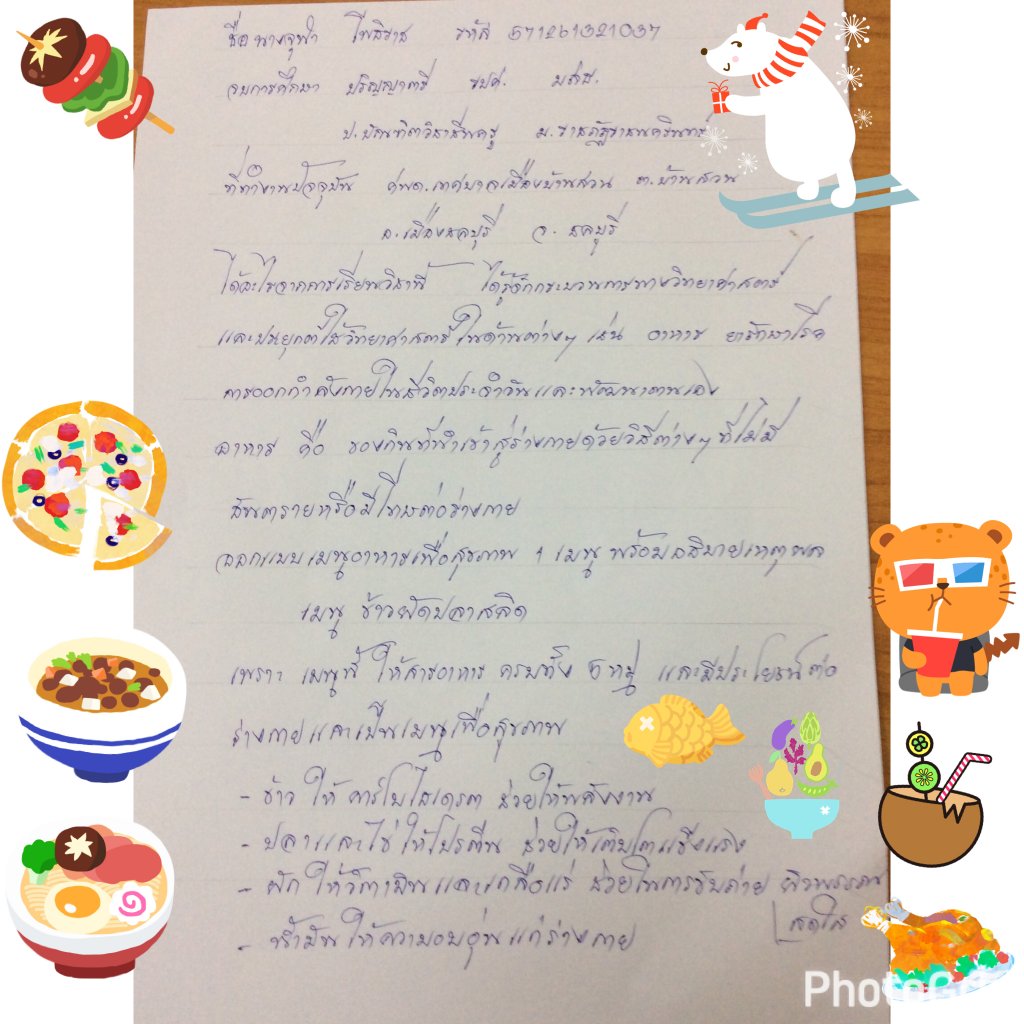 ชื่อ นางจุฬา โพธิราช รหัส 571261321037
จบการศึกษา ปริญญาตรี ศปศ. มสธ.
ป.บัณฑิตวิชาชีพครู ม.ราชภัฏราชนครินทร์
ที่ทำงานปัจจุบัน ศพด.เทศบาลเมืองบ้านสวน ต.บ้านสวน
อ.เมืองชลบุรี จ. ชลบุรี
ได้อะไรจากการเรียนวิชานี้ ได้รู้จักกระบวนการทางวิทยาศาสตร์
และประยุกต์ใช้วิทยาศาสตร์ในด้านต่างๆ เช่น อาหาร ยารักษาโรค
การออกกำลังกายในชีวิตประจำวันและพัฒนาตนเอง
อาหาร คือ ของกินที่นำเข้าสู่ร่างกายด้วยวิธีต่างๆ ที่ไม่มี
อันตรายหรือมีโทษต่อร่างกาย
ออกแบบเมนูอาหารเพื่อสุขภาพ 1 เมนู พร้อมอธิบายเหตุผล
เมนู ข้าวผัดปลาสลิด
เพราะ เมนูนี้ ให้สารอาหาร ครบทั้ง 5 หมู่ และมีประโยชน์ต่อ
ร่างกายและเป็นเมนูเพื่อสุขภาพ
- ข้าว ให้ คาร์โบไฮเดรต ช่วยให้พลังงาน
- ปลาและไข่ ให้โปรตีน ช่วยให้เติบโตแข็งแรง
- ผัก ให้วิตามินและเกลือแร่ ช่วยในการขับถ่าย ผิวพรรณ
สดใส
- น้ำมัน ให้ความอบอุ่นแก่ร่างกาย